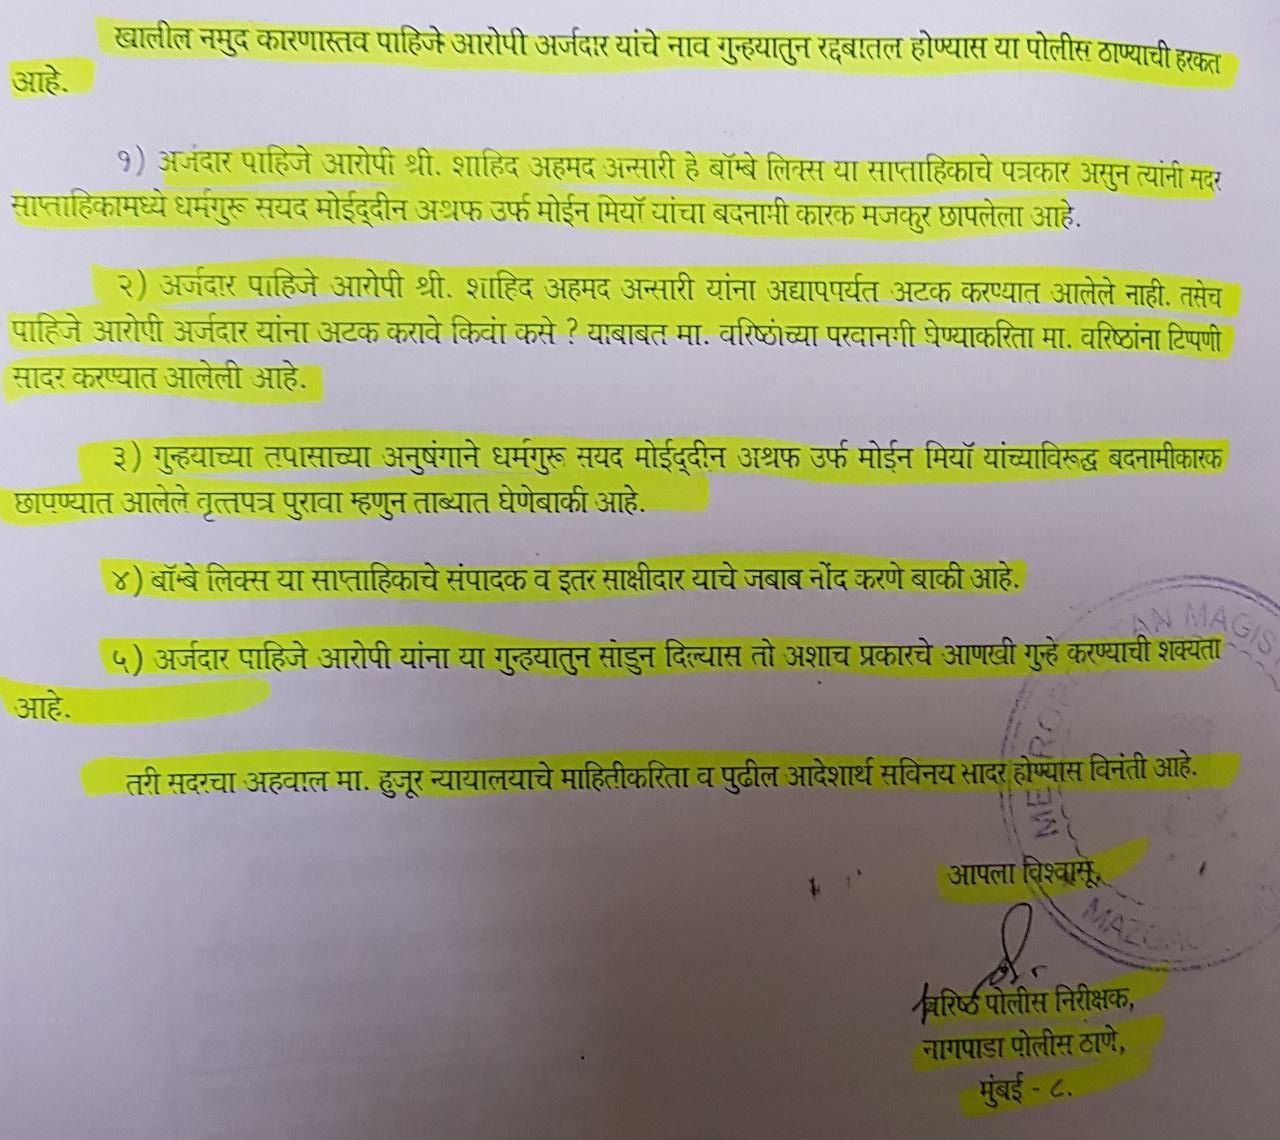 खालील नमुद कारणास्तव पाहिजे आरोपी अर्जदार यांचे नाव गुन्हयातुन रद्दबातल होण्यास या पोलीस ठाण्याची हरकत
आहे.
१) अर्जदार पाहिजे आरोपी श्री. शाहिद अहमद अन्सारी हे बॉम्बे लिक्स या साप्ताहिकाचे पत्रकार असुन त्यांनी मदर
साप्ताहिकामध्ये धर्मगुरू सयद मोईद्दीन अश्रफ उर्फ मोईन मियॉ यांचा बदनामी कारक मजकुर छापलेला आहे.
२) अर्जदार पाहिजे आरोपी श्री. शाहिद अहमद अन्सारी यांना अद्यापपर्यत अटक करण्यात आलेले नाही. तसेच
पाहिजे आरोपी अर्जदार यांना अटक करावे किवां कसे ? याबाबत मा. वरिष्ठांच्या परवानगी घेण्याकरिता मा. वरिष्ठांना टिप्पणी
सादर करण्यात आलेली आहे.
३) गुन्हयाच्या तपासाच्या अनुषंगाने धर्मगुरू सयद मोईद्दीन अश्रफ उर्फ मोईन मियॉ यांच्याविरूद्ध बदनामीकारक
छापण्यात आलेले वृत्तपत्र पुरावा म्हणुन ताब्यात घेणेबाकी आहे.
४) बॉम्बे लिक्स या साप्ताहिकाचे संपादक व इतर साक्षीदार याचे जबाब नोंद करणे बाकी आहे.
५) अर्जदार पाहिजे आरोपी यांना या गुन्हयातुन सोडुन दिल्यास तो अशाच प्रकारचे आणखी गुन्हे करण्याची शक्यता
आहे.
तरी सदरचा अहवाल मा. हुजूर न्यायालयाचे माहितीकरिता व पुढील आदेशार्थ सविनय सादर होण्यास विनंती आहे.
आपला विश्वासू,
वरिष्ठ पोलीस निरीक्षक,
नागपाडा पोलीस ठाणे,
मुंबई - ८.